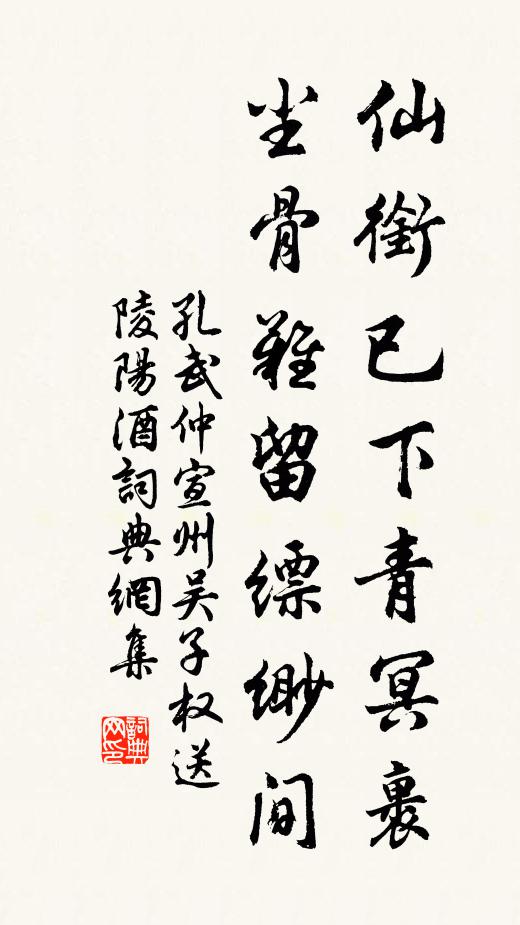 仙銜已下青冥裹
尘骨難留縹緲间
孔武仲宣州吴子权送
陵陽酒詞典網集
詞典网印